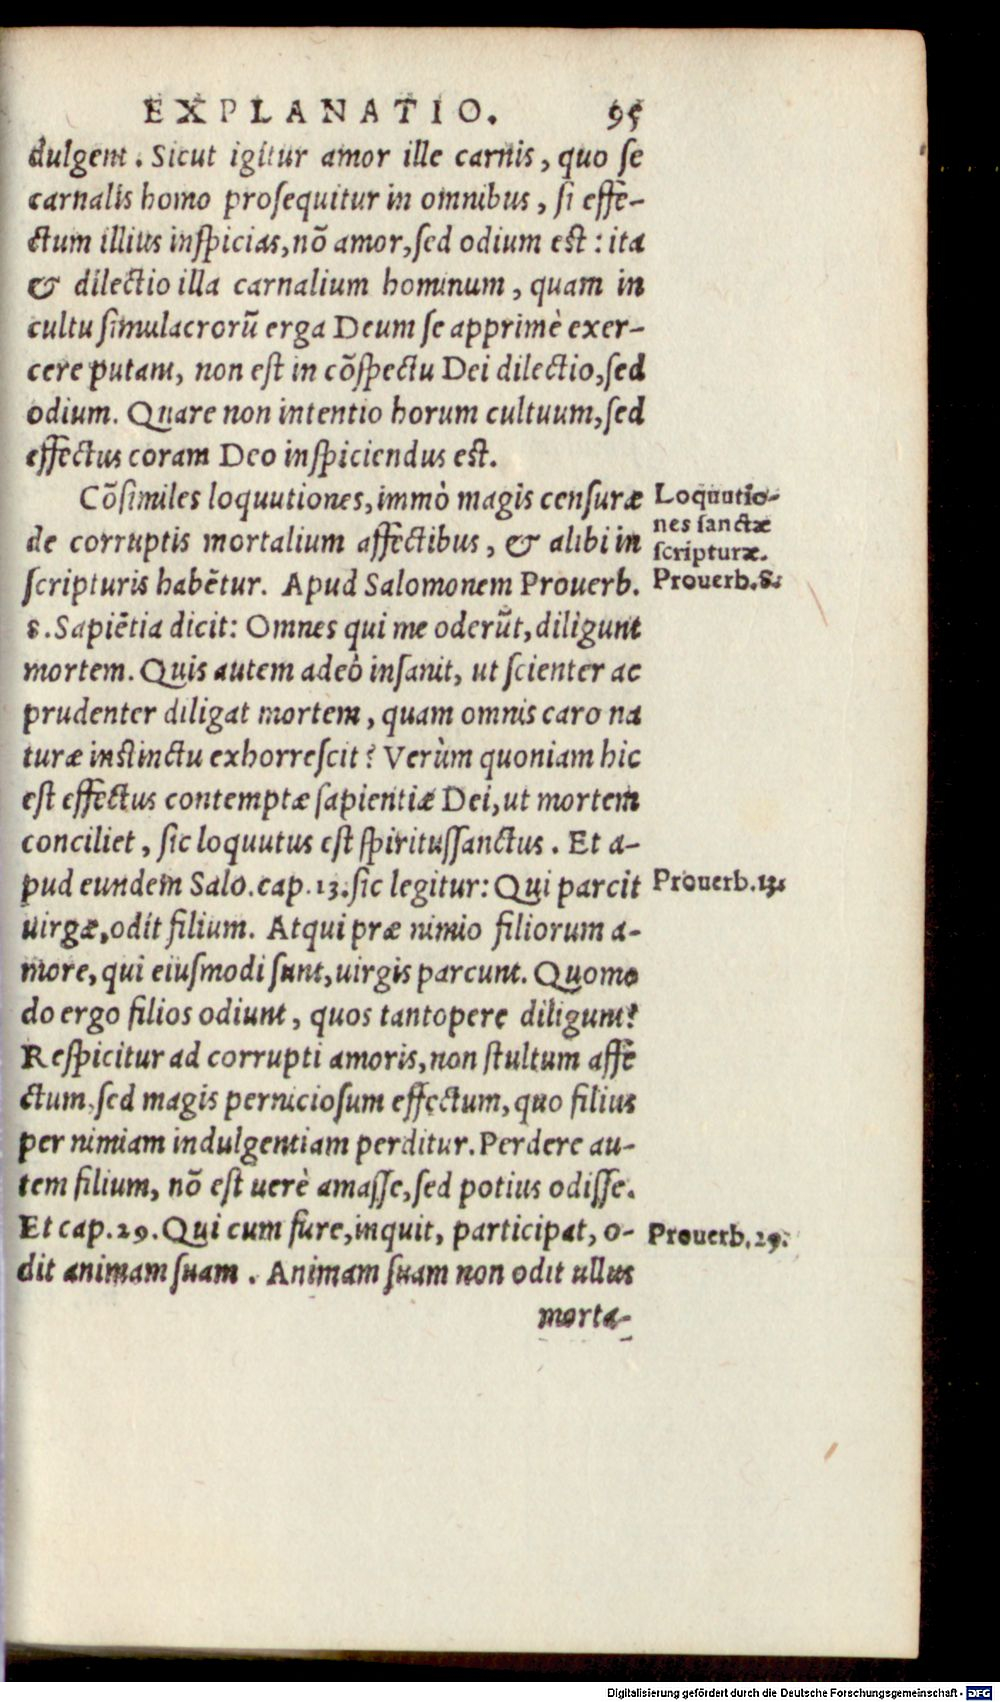 EXPLANATIO. 95
dulgent. Sicut igitur amor ille carnis, quo se
carnalis homo prosequitur in omnibus, si effe-
ctum illius inspicias, nō amor, sed odium est: ita
& dilectio illa carnalium hominum, quam in
cultu simulacrorū erga Deum se apprimè exer-
cere putant, non est in cōspectu Dei dilectio, sed
odium. Quare non intentio horum cultuum, sed
effectus coram Deo inspiciendus est.
Cōsimiles loquutiones, immò magis censuræ
de corruptis mortalium affectibus, & alibi in
scripturis habētur. Apud Salomonem Prouerb.
8. Sapiētia dicit: Omnes qui me oderūt, diligunt
mortem. Quis autem adeò insanit, ut scienter ac
prudenter diligat mortem, quam omnis caro na
turæ instinctu exhorrescit? Verùm quoniam hic
est effectus contemptæ sapientiæ Dei, ut mortem
conciliet, sic loquutus est spiritussanctus. Et a-
pud eundem Salo. cap. 13. sic legitur: Qui parcit
uirgæ, odit filium. Atqui præ nimio filiorum a-
more, qui eiusmodi sunt, uirgis parcunt. Quomo
do ergo filios odiunt, quos tantopere diligunt?
Respicitur ad corrupti amoris, non stultum affe
ctum, sed magis perniciosum effectum, quo filius
per nimiam indulgentiam perditur. Perdere au-
tem filium, nō est uerè amasse, sed potius odisse.
Et cap. 29. Qui cum fure, inquit, participat, o-
dit animam suam. Animam suam non odit ullus
morta-
Loquutio-
nes sanctæ
scripturæ.
Prouerb. 8.
Prouerb. 13.
Prouerb. 29.
Digitalisierung gefördert durch die Deutsche Forschungsgemeinschaft - DFG